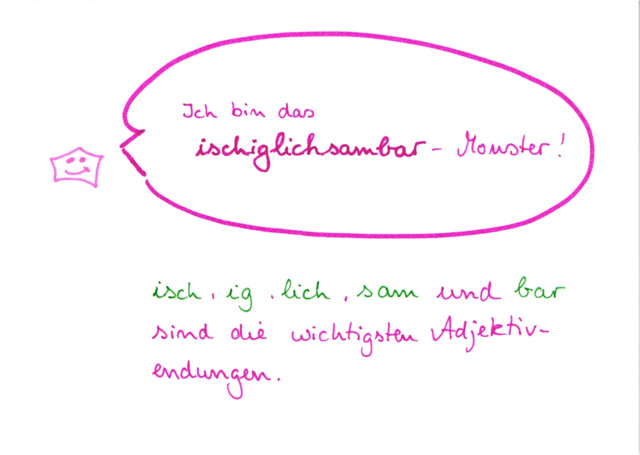 Ich bin das
ischiglichsambar - Monster!
isch, ig, lich, sam und bar
sind die wichtigsten Adjektiv-
endungen.